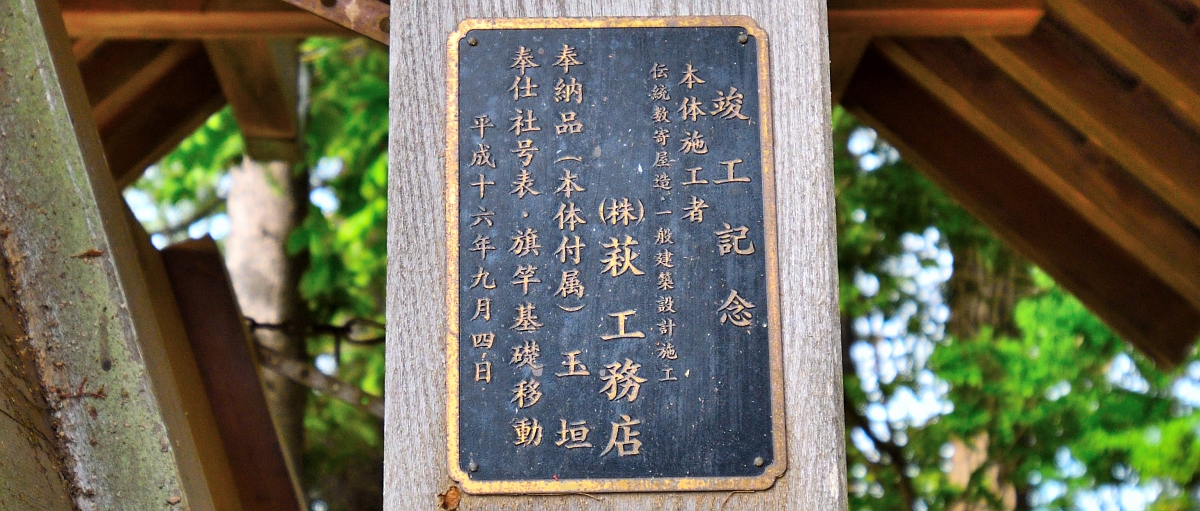 竣工記念
本体施工者
伝統数寄屋造・一般建築設計施工
(株)萩工務店
奉納品(本体付属)玉垣
奉仕社号表・旗竿基礎移動
平成十六年九月四日